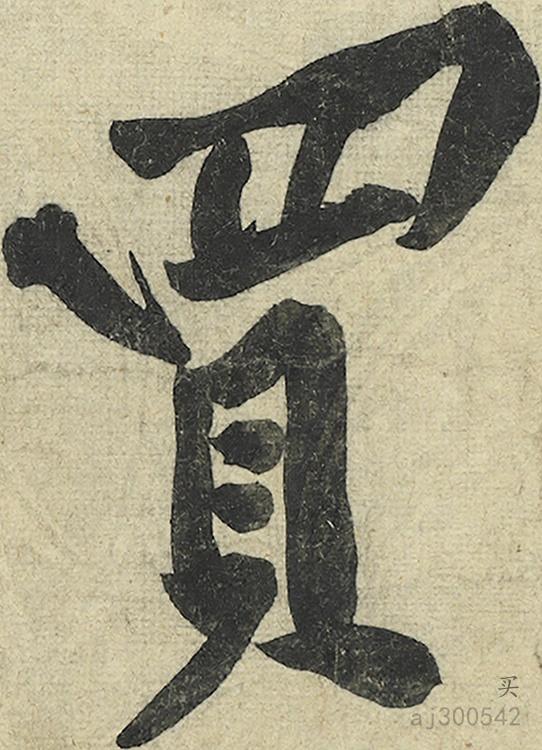 買
买
aj300542